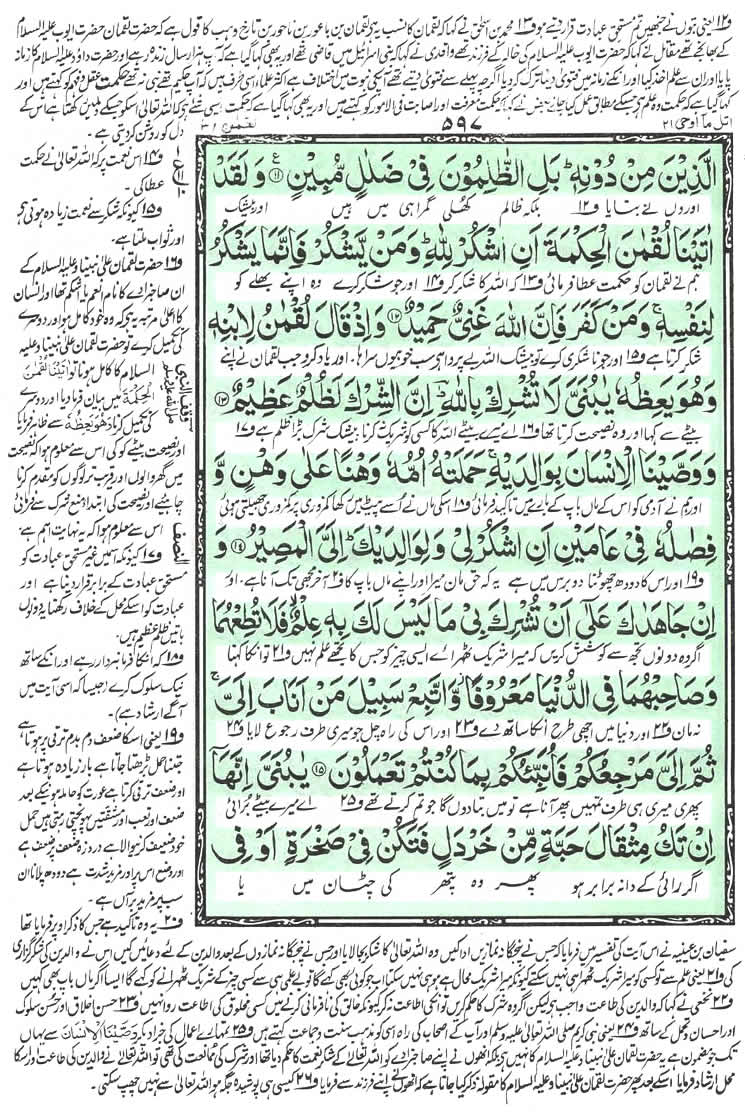 و۱۲ یعنی بتوں نے جنھیں تم مستحق عبادت قرار دیتے ہو و۱۳ محمد بن اسحٰق نے کہا کہ لقمان کا نسب یہ ہے لقمان بن باعور بن ناحور بن تارخ وہب کا قول ہے کہ حضرت لقمان حضرت ایوب علیہ السلام
کے بھانجے تھے مقاتل نے کہا کہ حضرت ایوب علیہ السلام کی خالہ کے فرزند تھے واقدی نے کہا کہ بنی اسرائیل میں قاضی تھے اور یہ بھی کہا گیا ہے کہ آپ ہزار سال زندہ رہے اور حضرت داؤد علیہ السلام کا زمانہ
پایا اور ان سے علم اخذ کیا اور انکے زمانہ میں فتویٰ دینا ترک کر دیا اگرچہ پہلے سے فتویٰ دیتے تھے آپکی نبوت میں اختلاف ہے اکثر علماء اسی طرف ہیں کہ آپ حکیم تھے نبی نہ تھے حکمت عقل و فہم کو کہتے ہیں اور
کہا گیا ہے کہ حکمت وہ علم ہے جسکے مطابق عمل کیا جائے بعض نے کہا کہ حکمت معرفت اور اصابت فی الامور کو کہتے ہیں اور یہ بھی کہا گیا ہے کہ حکمت ایسی شئے ہے کہ اللہ تعالیٰ اسکو جسکے دل میں رکھتا ہے اس کے
دل کو روشن کر دیتی ہے۔
اتل ما اوحی ۲۱
۵۹۷
لقمٰن ۳۱
الَّذِيْنَ مِنْ دُوْنِهٖ ؕ بَلِ الظّٰلِمُوْنَ فِيْ ضَلٰلٍ مُّبِيْنٍ ﴿۱۱﴾ وَلَقَدْ
اوروں نے بنایا و۱۲ بلکہ ظالم کھلی گمراہی میں ہیں اور بیشک
اٰتَيْنَا لُقْمٰنَ الْحِكْمَةَ اَنِ اشْكُرْ لِلّٰهِ ؕ وَمَنْ يَّشْكُرْ فَاِنَّمَا يَشْكُرُ
ہم نے لقمان کو حکمت عطا فرمائی و۱۳ کہ اللہ کا شکر کر و۱۴ اور جو شکر کرے وہ اپنے بھلے کو
لِنَفْسِهٖ ۚ وَمَنْ كَفَرَ فَاِنَّ اللّٰهَ غَنِيٌّ حَمِيْدٌ ﴿۱۲﴾ وَاِذْ قَالَ لُقْمٰنُ لِابْنِهٖ
شکر کرتا ہے و۱۵ اور جو ناشکری کرے تو بیشک اللہ بے پرواہ ہے سب خوبیوں سراہا، اور یاد کرو جب لقمان نے اپنے
وَهُوَ يَعِظُهٗ يٰبُنَيَّ لَا تُشْرِكْ بِاللّٰهِ ؔؕ اِنَّ الشِّرْكَ لَظُلْمٌ عَظِيْمٌ ﴿۱۳﴾
بیٹے سے کہا اور وہ نصیحت کرتا تھا و۱۶ اے میرے بیٹے اللہ کا کسی کو شریک نہ کرنا بیشک شرک بڑا ظلم ہے و۱۷
وَوَصَّيْنَا الْاِنْسَانَ بِوَالِدَيْهِ ۚ حَمَلَتْهُ اُمُّهٗ وَهْنًا عَلٰى وَهْنٍ وَّ
اور ہم نے آدمی کو اس کے ماں باپ کے بارے میں تاکید فرمائی و۱۸ اسکی ماں نے اُسے پیٹ میں رکھا کمزوری پر کمزوری جھیلتی ہوئی
فِصٰلُهٗ فِيْ عَامَيْنِ اَنِ اشْكُرْ لِيْ وَلِوَالِدَيْكَ ؕ اِلَيَّ الْمَصِيْرُ ﴿۱۴﴾ وَ
و۱۹ اور اس کا دودھ چھوٹنا دو برس میں ہے یہ کہ حق مان میرا اور اپنے ماں باپ کا و۲۰ آخر مجھی تک آنا ہے، اور
اِنْ جَاهَدٰكَ عَلٰۤى اَنْ تُشْرِكَ بِيْ مَا لَيْسَ لَكَ بِهٖ عِلْمٌ ۙ فَلَا تُطِعْهُمَا
اگر وہ دونوں تجھ سے کوشش کریں کہ میرا شریک ٹھہرائے ایسی چیز کو جس کا تجھے علم نہیں و۲۱ تو انکا کہنا
وَصَاحِبْهُمَا فِي الدُّنْيَا مَعْرُوْفًا ؗ وَّاتَّبِعْ سَبِيْلَ مَنْ اَنَابَ اِلَيَّ ۚ
نہ مان و۲۲ اور دنیا میں اچھی طرح انکا ساتھ دے و۲۳ اور اس کی راہ چل جو میری طرف رجوع لایا و۲۴
ثُمَّ اِلَيَّ مَرْجِعُكُمْ فَاُنَبِّئُكُمْ بِمَا كُنْتُمْ تَعْمَلُوْنَ ﴿۱۵﴾ يٰبُنَيَّ اِنَّهَاۤ
پھر میری ہی طرف تمہیں پھر آنا ہے تو میں بتا دوں گا جو تم کرتے تھے و۲۵ اے میرے بیٹے بُرائی
اِنْ تَكُ مِثْقَالَ حَبَّةٍ مِّنْ خَرْدَلٍ فَتَكُنْ فِيْ صَخْرَةٍ اَوْ فِي
اگر رائی کے دانہ برابر ہو پھر وہ پتھر کی چٹان میں یا
و۱۴ اس نعمت پر کہ اللہ تعالیٰ نے حکمت
عطا کی۔
و۱۵ کیونکہ شکر سے نعمت زیادہ ہوتی ہے
اور ثواب ملتا ہے۔
و۱۶ حضرت لقمان علیٰ نبینا وعلیہ السلام کے
ان صاحبزادے کا نام انعم یا اشکم تھا اور انسان
کا اعلیٰ مرتبہ یہ ہے کہ وہ خود کامل ہو اور دوسرے
کی تکمیل کرے تو حضرت لقمان علیٰ نبینا وعلیہ
السلام کا کامل ہونا تو اٰتَيْنَا لُقْمٰنَ
الْحِكْمَةَ میں بیان فرما دیا اور دوسرے
کی تکمیل کرنا وَهُوَ يَعِظُهٗ سے ظاہر فرمایا
اور نصیحت بیٹے کو کی اس سے معلوم ہوا کہ نصیحت
میں گھر والوں اور قریب تر لوگوں کو مقدم کرنا
چاہیئے اور نصیحت کی ابتدا منع شرک سے فرمائی
اس سے معلوم ہوا کہ یہ نہایت اہم ہے۔
و۱۷ کیونکہ اس میں غیر مستحق عبادت کو
مستحق عبادت کے برابر قرار دینا ہے اور
عبادت کو اسکے محل کے خلاف رکھنا یہ دونوں
باتیں ظلم عظیم ہیں۔
و۱۸ کہ انکا فرمانبردار رہے اور انکے ساتھ
نیک سلوک کرے (جیسا کہ اسی آیت میں
آگے ارشاد ہے)۔
و۱۹ یعنی اسکا ضعف دم بدم ترقی پر ہوتا ہے
جتنا حمل بڑھتا جاتا ہے بار زیادہ ہوتا ہے
اور ضعف ترقی کرتا ہے عورت کو حاملہ ہونیکے بعد
ضعف اور تعب اور مشقتیں پہونچتی رہتی ہیں حمل
خود ضعیف کرنیوالا ہے درد زہ ضعف پر ضعف ہے
اور وضع اس پر اور مزید شدت ہے دودھ پلانا ان
سب پر مزید برآں ہے
و۲۰ یہ وہ تاکید ہے جس کا ذکر اوپر فرمایا تھا
النصف
سفیان بن عیینہ نے اس آیت کی تفسیر میں فرمایا کہ جس نے پنجگانہ نمازیں ادا کیں وہ اللہ تعالیٰ کا شکر بجا لایا اور جس نے پنجگانہ نمازوں کے بعد والدین کے لئے دعائیں کیں اس نے والدین کی شکرگزاری
کی و۲۱ یعنی علم سے تو کسی کو میرا شریک ٹھہرا ہی نہیں سکتے کیونکہ میرا شریک محال ہے ہو ہی نہیں سکتا اب جو کوئی بھی کہے گا تو بے علمی ہی سے کسی چیز کے شریک ٹھہرانے کو کہے گا ایسا اگر ماں باپ بھی کہیں
و۲۲ نخعی نے کہا کہ والدین کی طاعت واجب ہے لیکن اگر وہ شرک کا حکم کریں تو انکی اطاعت نہ کر کیونکہ خالق کی نافرمانی کرنے میں کسی مخلوق کی اطاعت روا نہیں و۲۳ حسن اخلاق اور حسن سلوک
اور احسان و تحمل کے ساتھ و۲۴ یعنی نبی کریم صلی اللہ تعالیٰ علیہ وسلم اور آپ کے اصحاب کی راہ اسی کو مذہب سنت و جماعت کہتے ہیں و۲۵ تمہارے اعمال کی جزا دیکر وَصَّيْنَا الْاِنْسَانَ سے یہاں
تک جو مضمون ہے یہ حضرت لقمان علیٰ نبینا وعلیہ السلام کا نہیں ہے بلکہ انھوں نے اپنے صاحبزادے کو اللہ تعالیٰ کے شکر نعمت کا حکم دیا تھا اور شرک کی ممانعت کی تھی تو اللہ تعالیٰ نے والدین کی طاعت اور اسکا
محل ارشاد فرما دیا اسکے بعد پھر حضرت لقمان علیٰ نبینا وعلیہ السلام کا مقولہ ذکر کیا جاتا ہے کہ انھوں نے اپنے فرزند سے فرمایا و۲۶ کیسی ہی پوشیدہ جگہ ہو اللہ تعالیٰ سے نہیں چھپ سکتی۔